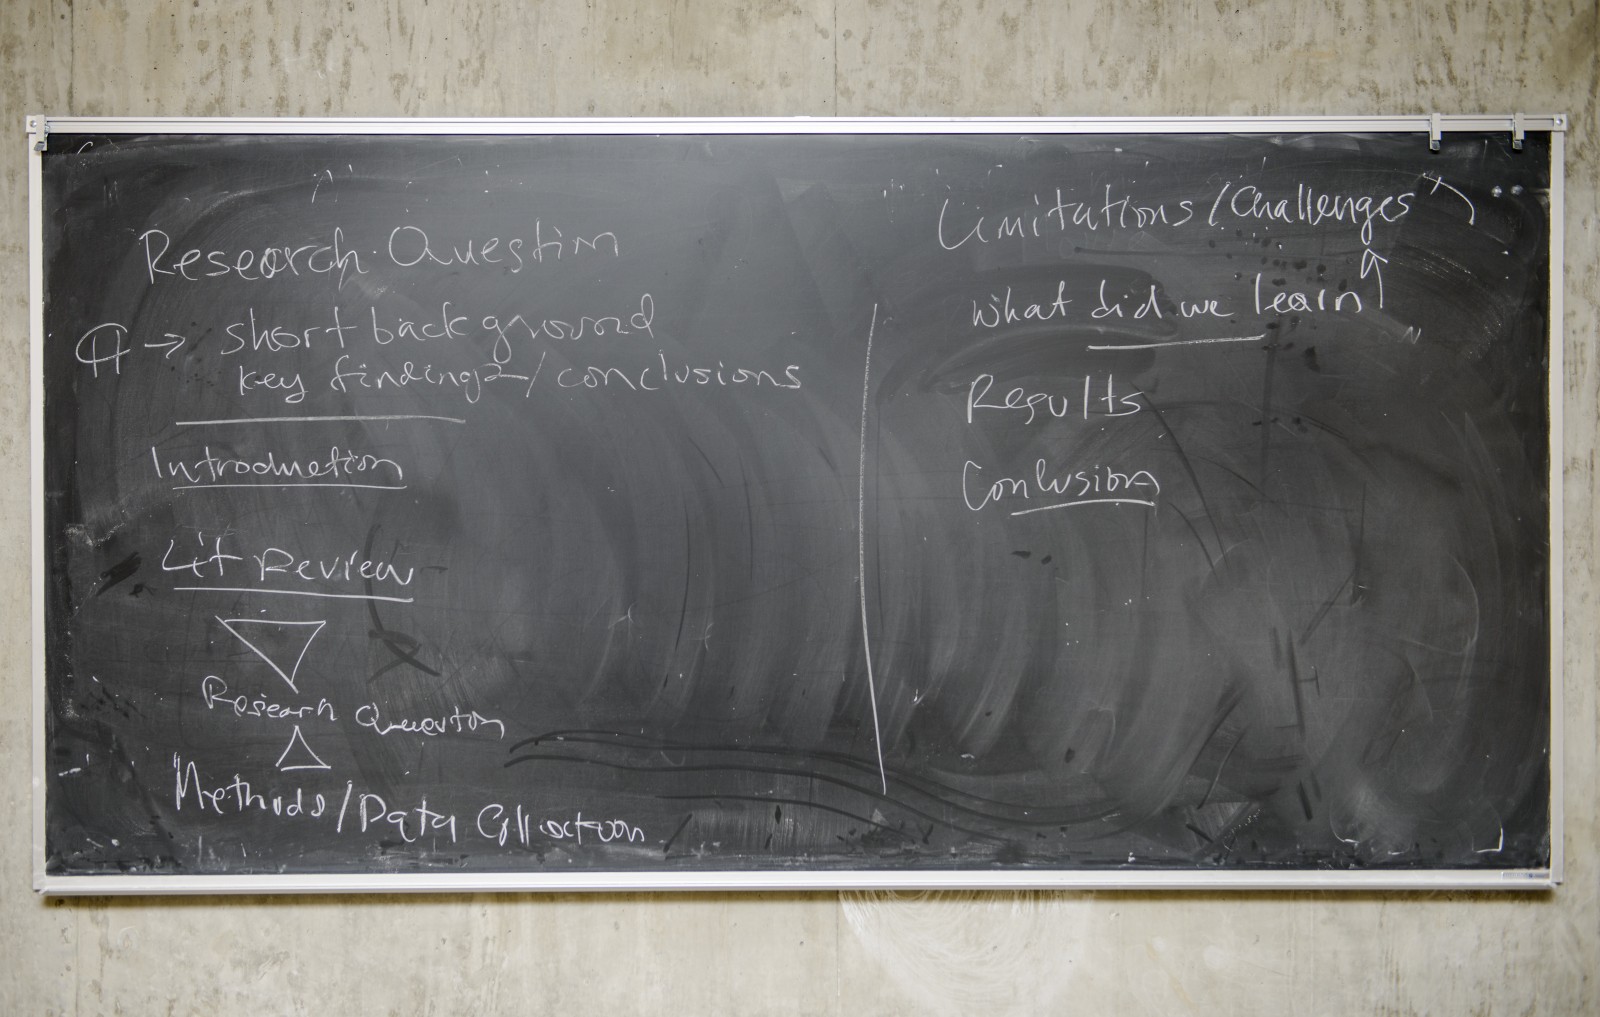 Research Question
¶ → short background
key findings/conclusions
Introduction
Lit Review
Research Question
Methods/Data Collection
Limitations/Challenges
What did we learn
Results
Conlusion